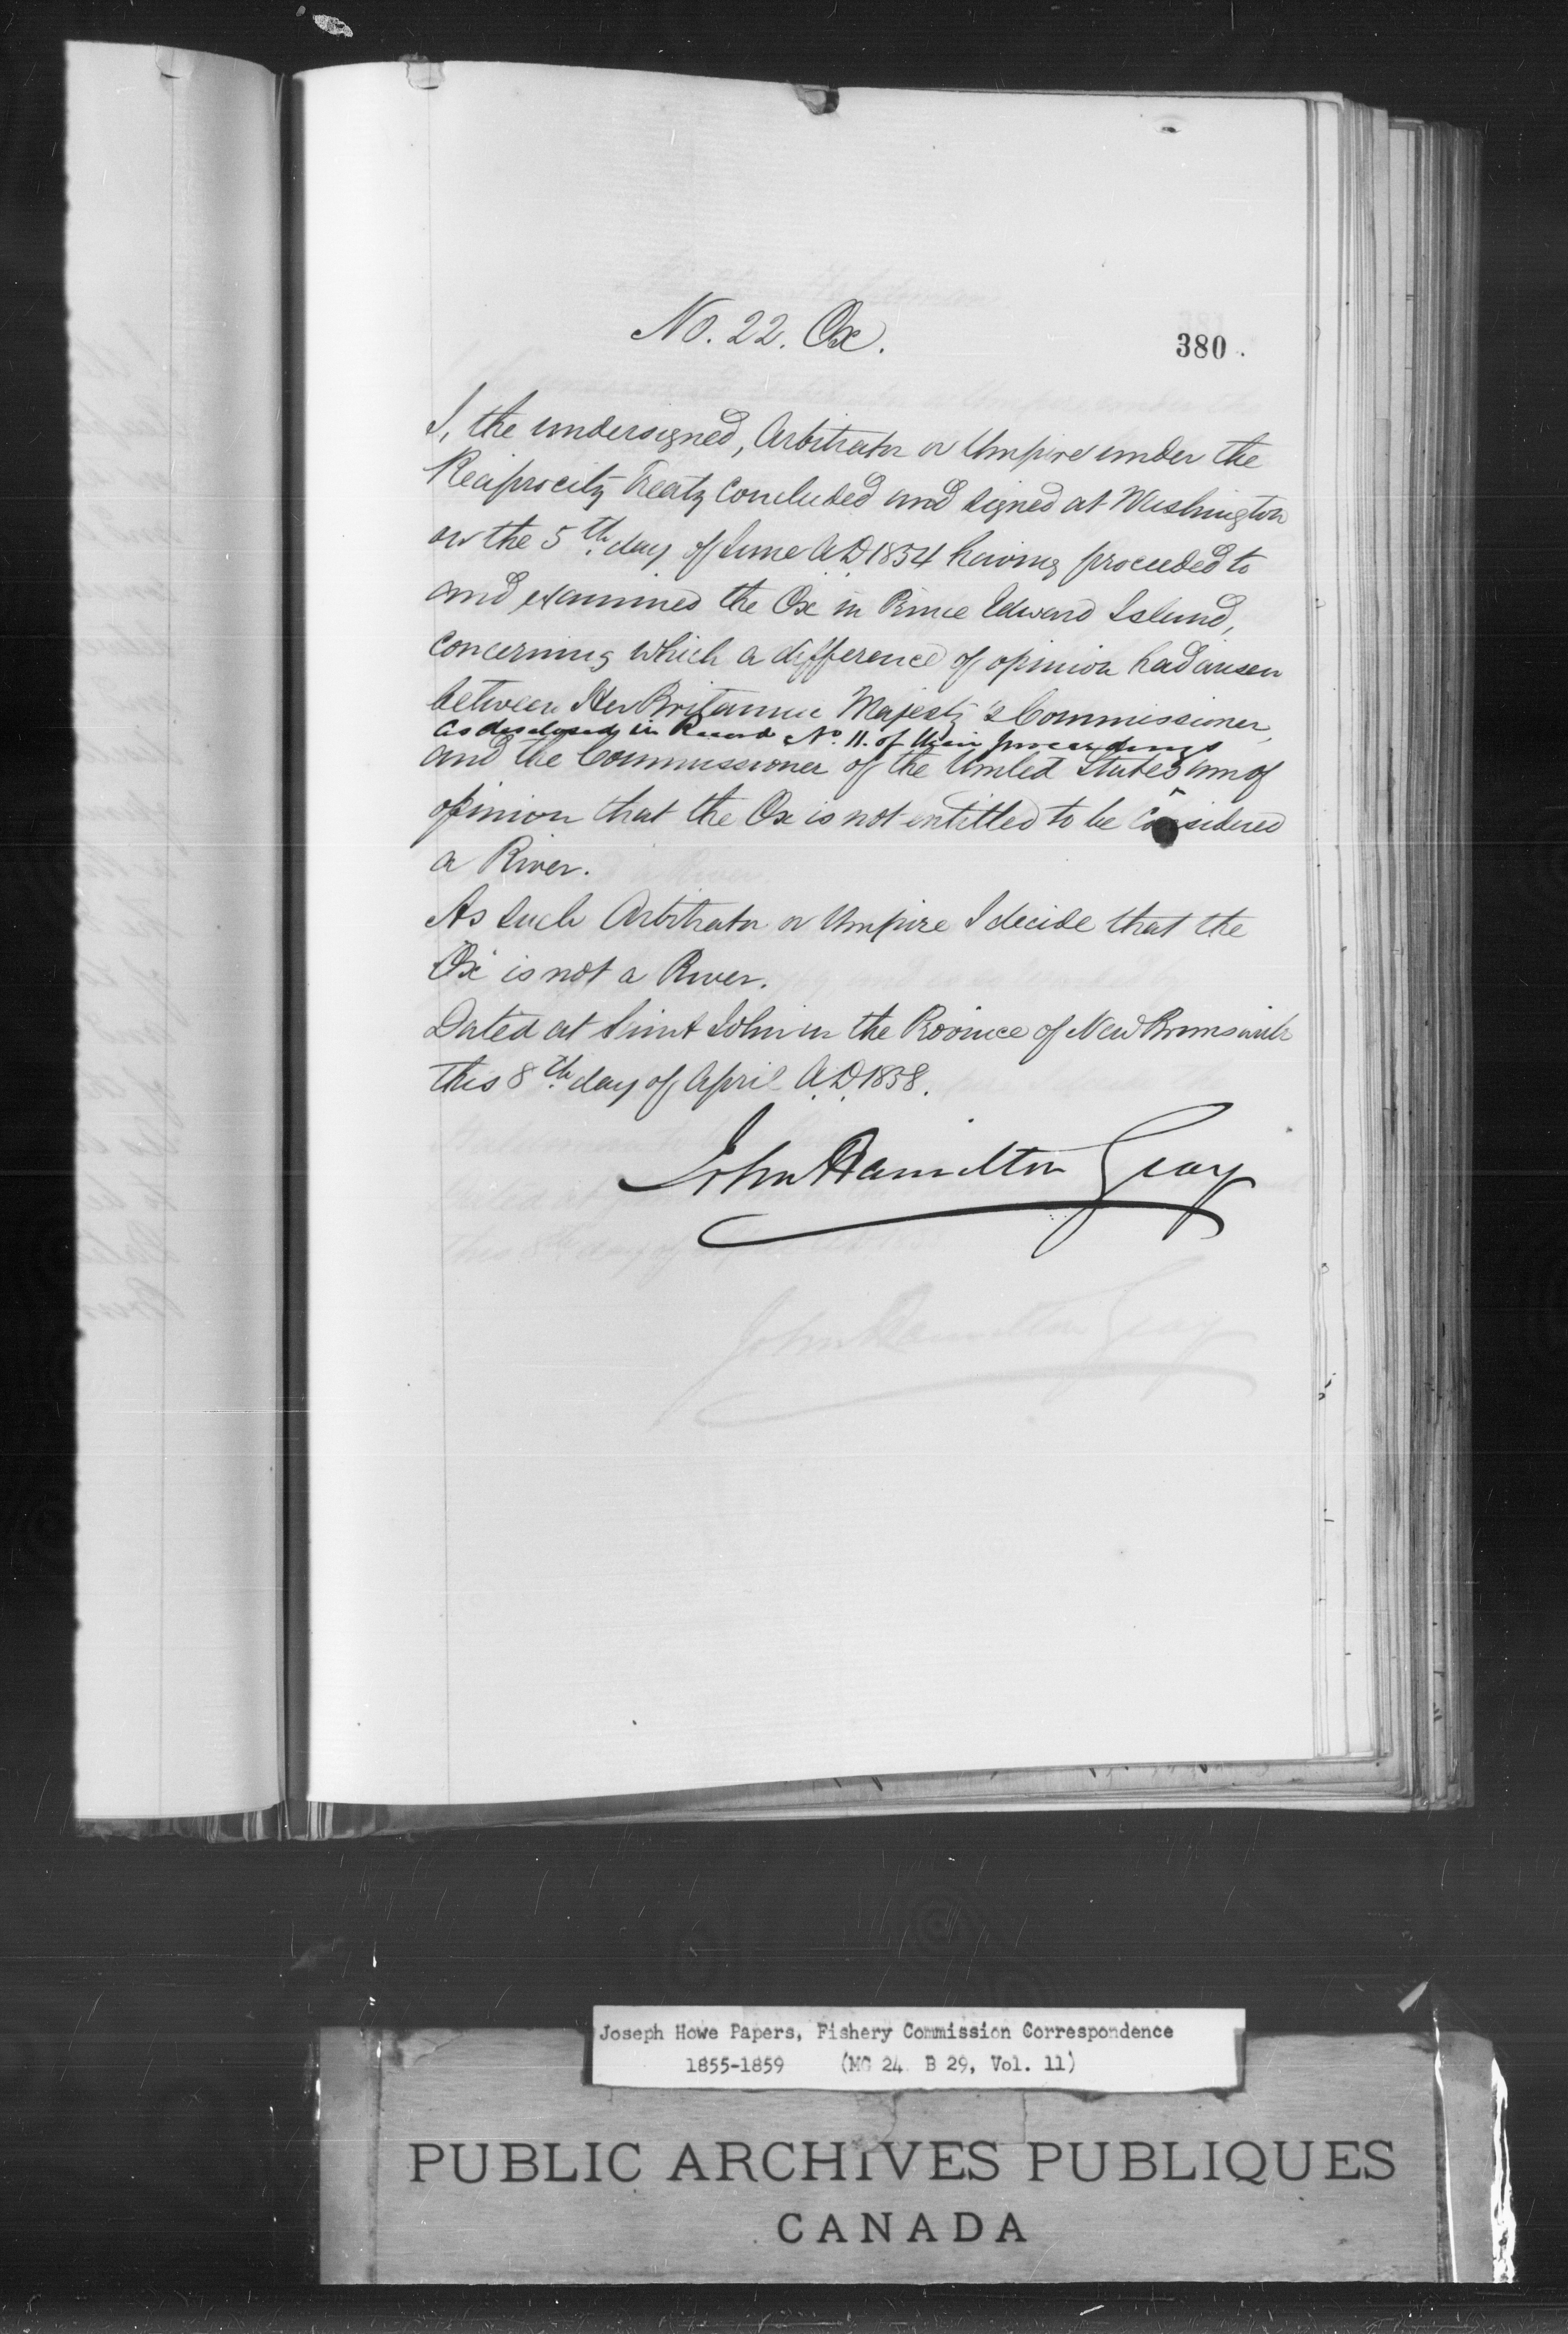 No. 22. Ox.
380.
I, the undersigned, Arbitrator or Umpire under the
Reciprocity Treaty Concluded and signed at Washington
on the 5th day of June A.D. 1854 having proceeded to
and examined the Ox in Prince Edward Island,
concerning which a difference of opinion had arisen
between Her Britannic Majesty's Commissioner,
as disclosed in Record No. 11. of their proceedings
and the Commissioner of the United States ^ am of
opinion that the Ox is not entitled to be Considered
a River.
As such Arbitrator or Umpire I decide that the
Ox is not a River.
Dated at Saint John in the Province of New Brunswick
this 8th day of April A.D. 1858.
John Hamilton Gray
Joseph Howe Papers, Fishery Commission Correspondence
1855-1859 (MG 24 B 29, Vol. 11)
PUBLIC ARCHIVES PUBLIQUES
CANADA